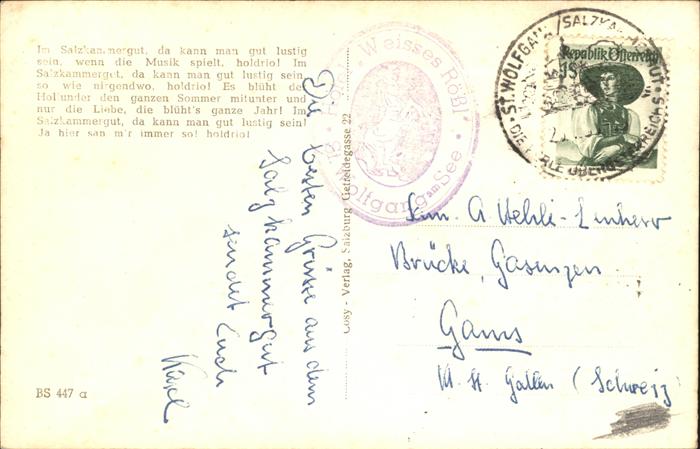 Im Salzkammergut, da kann man gut lustig
sein, wenn die Musik spielt, holdrio! Im
Salzkammergut, da kann man gut lustig sein,
so wie nirgendwo, holdrio! Es blüht der
Hollunder den ganzen Sommer mitunter und
nur die Liebe, die blüht's ganze Jahr! Im
Salzkammergut, da kann man gut lustig sein!
Ja hier san m'r immer so! holdrio!
Die besten Grüsse aus dem
Salzkammergut
sendet Euch
BS 447 a
Cosy - Verlag, Salzburg, Getreidegasse 22
Hotel · Weisses Rößl ·
St. Wolfgang am See
ST. WOLFGANG / SALZKAMMERGUT
DIE PERLE OBERÖSTERREICHS
Republik Österreich
Fam. A
Brücke, Gasenzen
Gams
St Gallen (Schweiz)